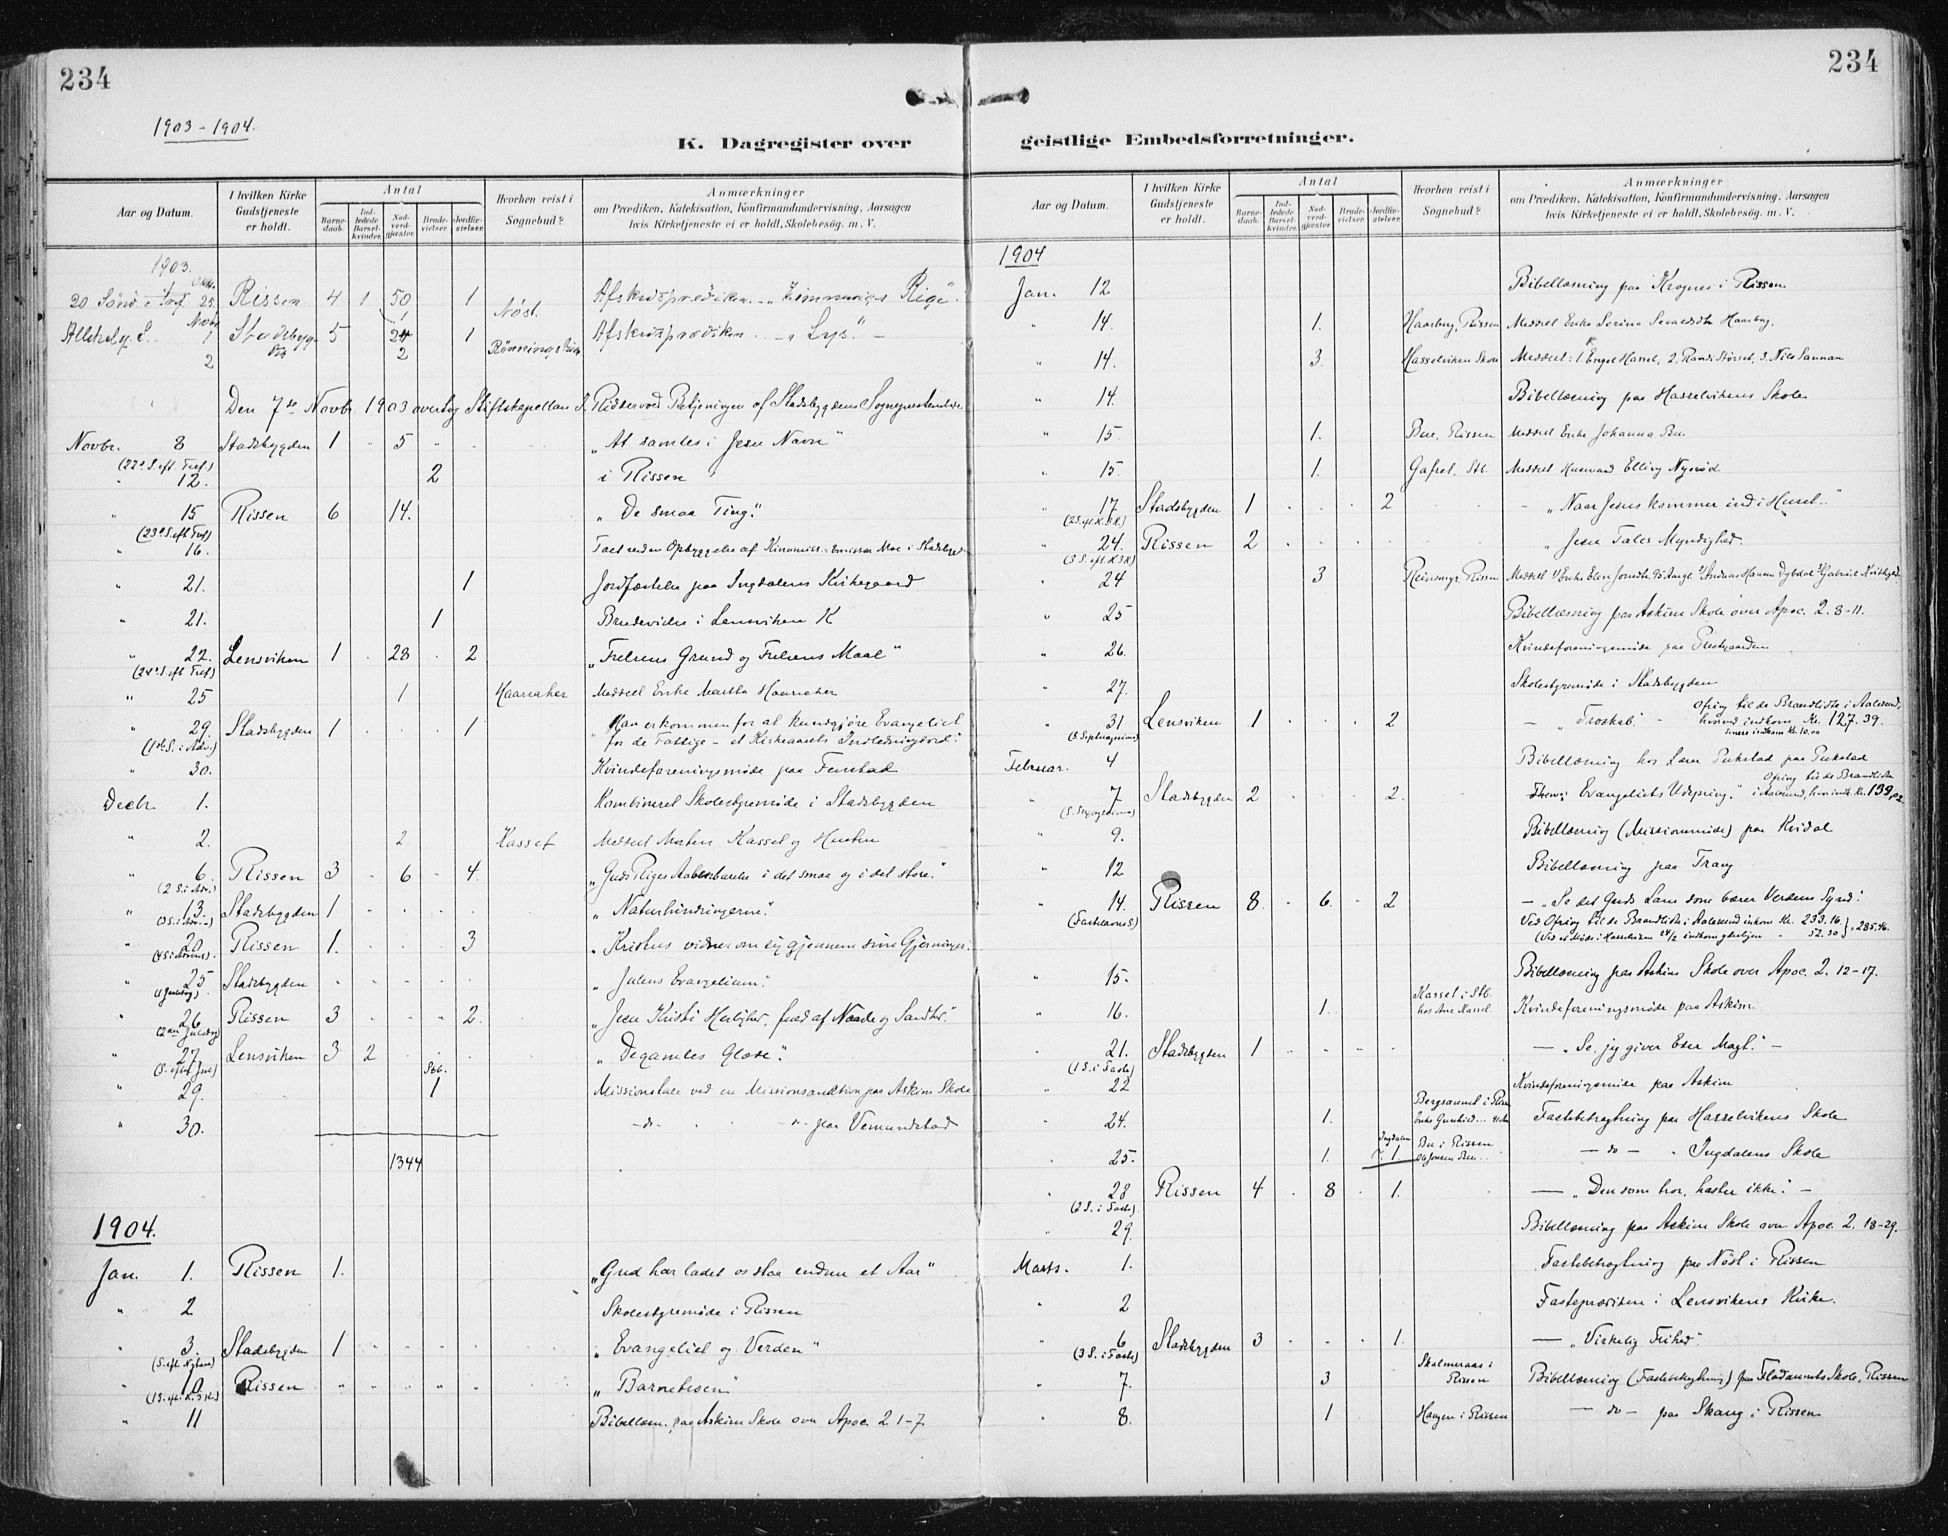 234
1903-1904.
K. Dagregister over
Aar og Datum.
I hvilken Kirke Gudstjeneste er holdt.
Antal
Barnedaab.
Indledede Barselkvinder.
Nadverdgjæster.
Brudevielser.
Jordfæstelser.
Hvorhen reist i Sognebud?
Anmærkninger
om Prædiken, Katekisation, Konfirmandundervisning, Aarsagen
hvis Kirketjeneste ei er holdt, Skolebesög. m. V.
1903.
20 Sönd e Tref 25 Rissen 4 1 50 1 Afskedsprædiken
1 Nöst.
Allehelg. S. Novbr 1 Stadsbygd 5 24 1 Afskedsprædiken - "Lys" -
2 2
Den 7de Novbr. 1903 overtog Stiftskapellan Ridderwold Betjeningen af Stadsbygdens Sogneprestembede.
Novbr. 8 Stadsbygden 1 . 5 "At samles i Jesu Navn"
(22 S. eft. Tref)
" 12. 2 i Rissen
" 15 Rissen 6 14. "De smaa Ting."
(23 S. eft Tref)
" 16. i Stadsbygden
" 21. 1 Jordfæstelse paa Ingdalens Kirkegaard
" 21. 1 Brudevielse i Lensviken K
" 22. Lensviken 1 . 28 . 2 "Frelsens Grund og Frelsens Maal"
(24 S. eft Tref)
" 25 1 Haarraker Meddeel Enke Martha Haarraker
" 29. Stadsbygden 1 . . . 1 "Han er kommen for at kundgjöre Evangeliet
(1ste S. i Adv.) for de Fattige - et Kirkeaarets Indledningsord."
" 30. Kvindeforeningsmöde paa Fenstad
Decbr. 1. Kombineret Skolestyremöde i Stadsbygden
" 2. 2 Kasset Meddeel Morten Kasset og Hustru
" 6. Rissen 3 . 6 . 4. "Guds Riges Aabenbarelse i det smaa og i det store."
(2 S. i Adv.)
" 13 Stadsbygden 1 . . . . "Naturhindringerne."
(3 S. i Adv.)
" 20 Rissen 1. . . . 3 "Kristus vidner om sig gjennem sine Gjerninger."
(4 S. i Advent).
" 25 Stadsbygden . . . . . "Julens Evangelium."
(1 Juledag).
" 26 Rissen 3 . . . 2. "Jesu Kristi Herlighed, fuld af Naade og Sandhed."
(2den Juledag)
" 27 Lensviken 3 2 . . . "De gamles Glæde."
(S. efter Jul)
Stb.
" 29. 1 Missionstale ved en Missionsauktion paa Askim Skole
" 30. -do- -do- paa Vemundstad
1344
1904.
Jan. 1. Rissen 1. "Gud har ladet os staa endnu et Aar"
" 2 Skolestyremöde i Rissen
" 3. Stadsbygden 1 . . . . "Evangeliet og Verden"
(S. eft. Nytaar)
" 10 Rissen " " " " " "Barnetroen"
(1 S. eft. H. 3 K.)
" 11 Bibellæsn. paa Askim Skole over Apoc. 2 1-7.
234
geistlige Embedsforretninger.
Aar og Datum.
I hvilken Kirke Gudstjeneste er holdt.
Antal
Barnedaab.
Indledede Barselkvinder.
Nadverdgjæster.
Brudevielser.
Jordfæstelser.
Hvorhen reist i Sognebud?
Anmærkninger
om Prædiken, Katekisation, Konfirmandundervisning, Aarsagen
hvis Kirketjeneste ei er holdt, Skolebesög. m. V.
1904
Jan. 12 Bibellæsning paa Krognes i Rissen
" 14. 1. Haarberg, Rissen Meddeel Enke Serina Haarberg.
" 14. 3. Hasselviken Skole Meddeel: 1 Engel Hassel, 2. Størset, 3. Nils Sannan
" 14. Bibellæsning paa Hasselvikens Skole
" 15 1. Bue, Rissen Meddeel Enke Johanna Bue
" 15. 1. Stb. Meddeel Husmand Elling Nyröd
" 17 Stadsbygden 1 . . . 2 - "Naar Jesus kommer ind i Huset."
(2 S. eft H. 3 K)
" 24. Rissen 2 . . . . "Jesu Tales Myndighed.
(3 S. eft H. 3 K)
" 24 3 Reinsmyr Rissen
" 25 Bibellæsning paa Askim Skole over Apoc. 2. 8-11.
" 26. Kvindeforeningsmöde paa Prestgaarden
" 27. Skolestyremöde i Stadsbygden
" 31 Lensviken 1 . . . 2 - "Troskab." - Ofring til de Brandlidte i Aalesund,
(S. Septuagesima) hvorved indkom Kr. 127.39.
senere indkom Kr. 10.00
Februar. 4 Bibellæsning hos Lærer
" 7 Stadsbygden 2 . . . 2. Evangeliets Udspring." Ofring til de Brandlidte i Aalesund, hvor indk. Kr. 139,02
(S. Sexagesima)
" 9. Bibellæsning (Missionsmöde) paa Kvidal
" 12 Bibellæsning paa Trang
" 14. Rissen 8. . 6. . 2 - "Se det Guds Lam som bærer Verdens Synd."
(Fastelavns S) Ved Ofring til de Brandlidte i Aalesund indkom Kr. 233.16
(Ved et Möde i Hasselviken 24/2 indkom yderligere - 52.30) = 285.46.
" 15. Bibellæsning paa Askim Skole over Apoc. 2. 12-17.
" 16. 1. Kasset i Stb. hos Ane Kasset. Kvindeforeningsmöde paa Askim.
" 21. Stadsbygden 1 . . . . - "Se, jeg giver Eder Magt." -
(1 S. i Faste)
" 22 Kvindeforeningsmöde paa Askim
" 24. 1. Enke Gunhild Fastebetragtning paa Hasselvikens Skole
" 25. 1. Ingdalen 1 Bue i Rissen -do- " Ingdalens Skole
" 28 Rissen 4 . 8 . 1. - "Den som tror, haster ikke." -
(2 S. i Faste).
" 29. Bibellæsning paa Askim Skole over Apoc. 2. 18-29.
Marts. 1. Fastebetragtning paa Nöst i Rissen
" 2 Fasteprædiken i Lensvikens Kirke.
" 6 Stadsbygden 3 . . . 1. - "Virkelig Frihed."
(3 S. i Faste)
" 7. 3 Skalmeraas i Rissen Bibellæsning (Fastebetragtning) paa Skole, Rissen
" 8. 1 Haugen i Rissen -do- paa Skaug i Rissen